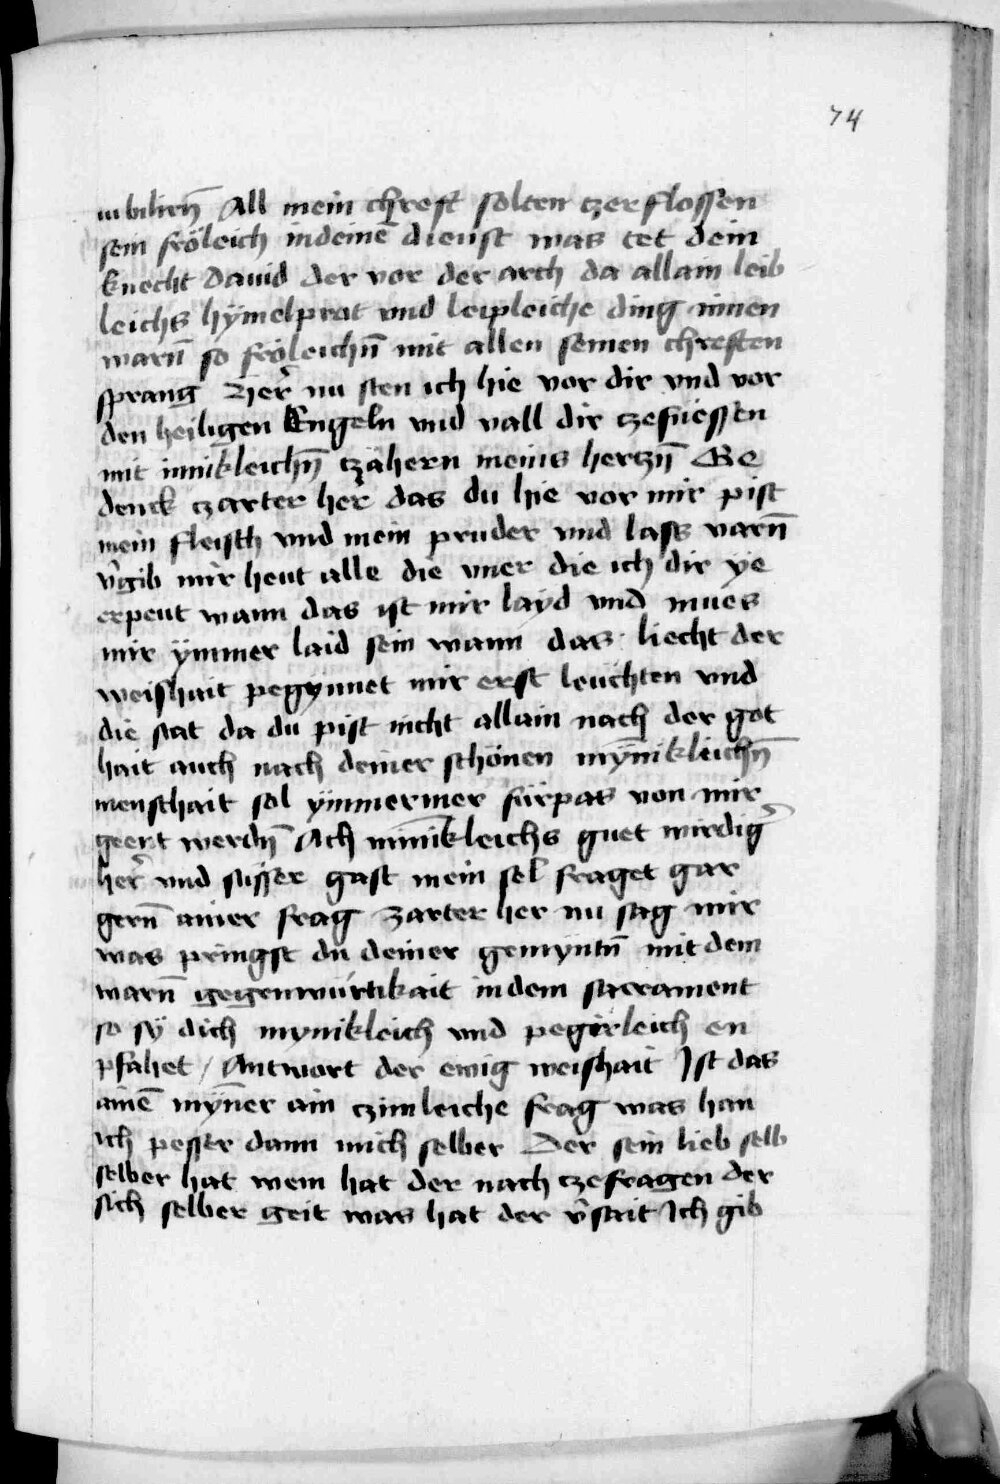 74
iubiliern̄ All mein chreft solten tzerflossen
sein fröleich indeinē dienst was tet dein
knecht dauid der vor der arch da allain leib
leichs hymelprat vnd leipleiche ding innen
warn̄ so fröleichn̄ mit allen seinen chreften
sprang Her̄ nu sten ich hie vor dir vnd vor
den heiligen Engeln vnd vall dir tzefüessen
mit innikleichn̄ tzähern meins hertzn̄ Ge
denck tzarter her̄ das du hie vor mir pist
mein fleisch vnd mein pruder vnd lass varn̄
v̄gib mir heut alle die vner die ich dir ye
erpeut wann das ist mir layd vnd mues
mir ÿmmer laid sein wann das liecht der
weishait pegynnet mir erst leuchten vnd
die stat da du pist nicht allain nach der got
hait auch nach deiner schönen mÿnikleichn̄
menschait sol ÿmmermer fürpas von mir
geert werdn̄ Ach minnikleichs guet wirdig̛
her̄ vnd süsser gast mein sel fraget gar
gern̄ ainer frag Zarter her nu sag mir
was pringst du deiner gemyntn̄ mit dem
warn̄ gegenwürtikait in dem sacrament
so sÿ dich mynikleich vnd pegirleich en
pfahet / Antwort der ewig weishait Ist das
ainē mȳner ain tzimleiche frag was han
ich pesser dann mich selber Der sein lieb selb
selber hat wem hat der nach tzefragen der
sich selber geit was hat der v̄sait Ich gib